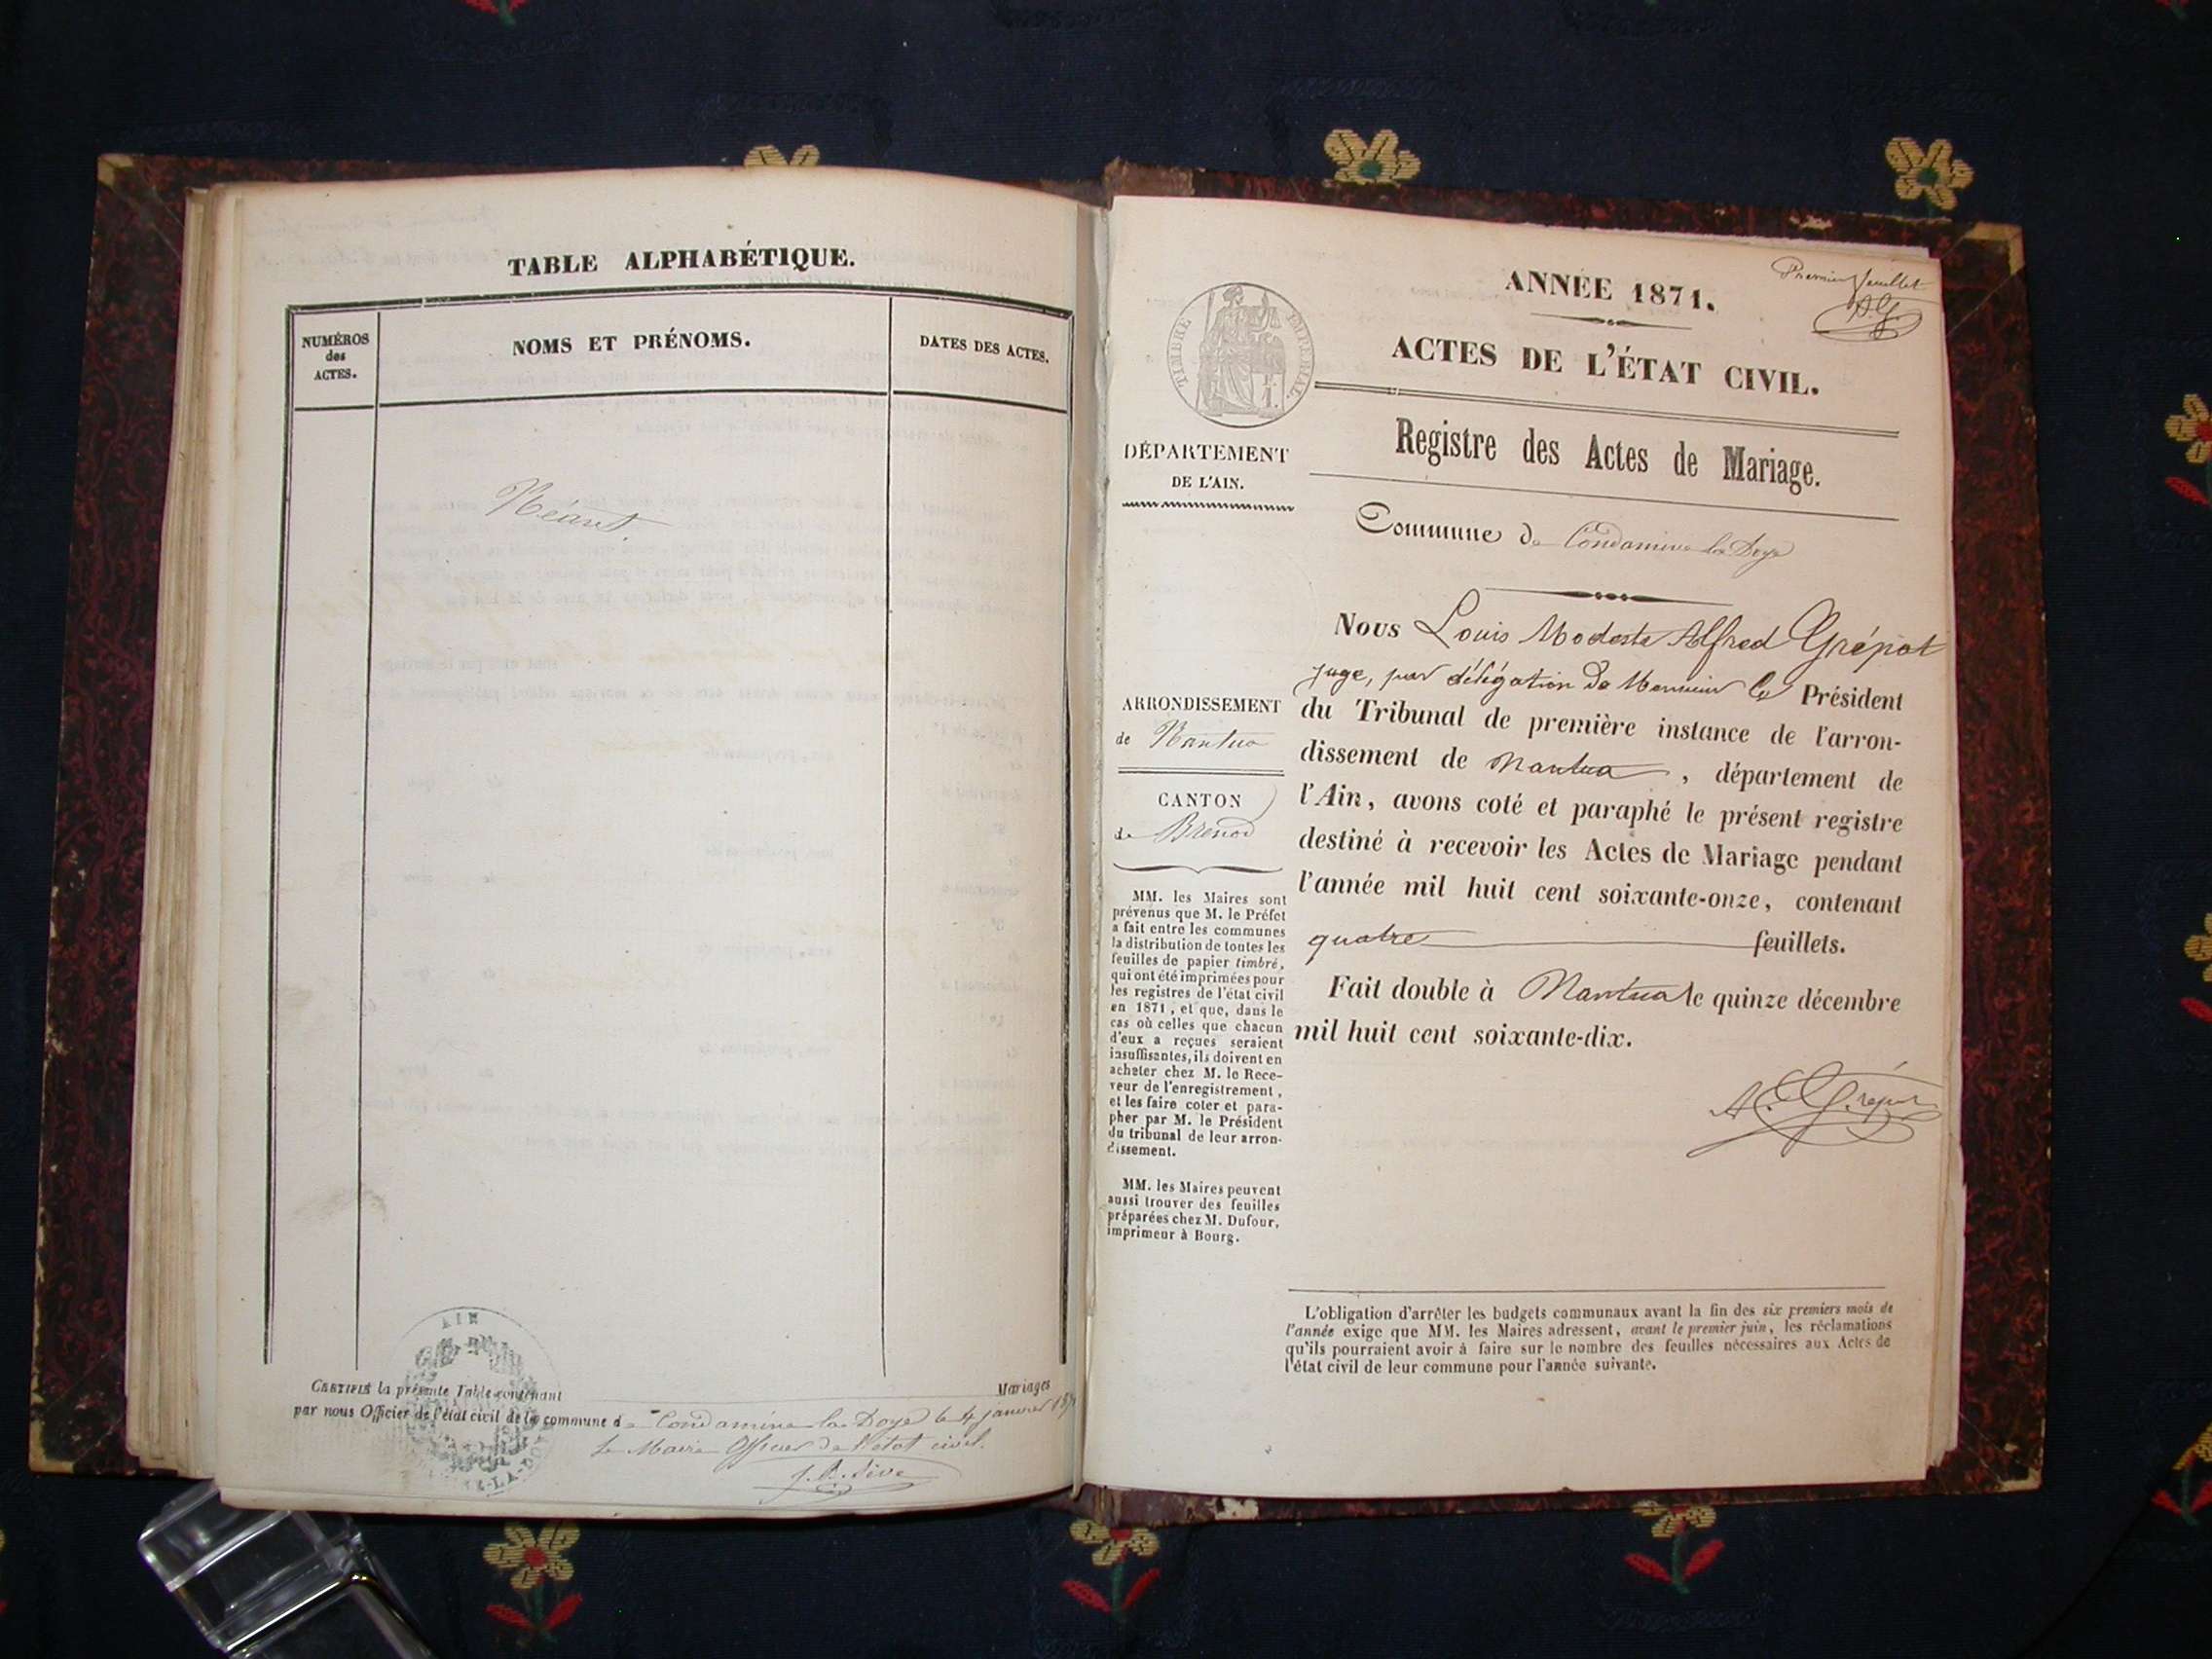 TABLE ALPHABÉTIQUE.
NUMÉROS
des
ACTES.
NOMS ET PRÉNOMS.
DATES DES ACTES.
Néant.
AIN
CERTIFIÉ la présente Table contenant Mariages
par nous Officier de l'état civil de la commune de Condamine la Doye le 4 janvier
le Maire Officier de l'état civil.
J. B. Sève
Premier feuillet
AG
ANNÉE 1871.
ACTES DE L'ÉTAT CIVIL.
TIMBRE IMPÉRIAL.
1 F.
Registre des Actes de Mariage.
DÉPARTEMENT
DE L'AIN.
Commune de Condamine la Doye
ARRONDISSEMENT
de Nantua
CANTON
de Brenod
MM. les Maires sont
prévenus que M. le Préfet
a fait entre les communes
la distribution de toutes les
feuilles de papier timbré,
qui ont été imprimées pour
les registres de l'état civil
en 1871, et que, dans le
cas où celles que chacun
d'eux a reçues seraient
insuffisantes, ils doivent en
acheter chez M. le Rece-
veur de l'enregistrement,
et les faire coter et para-
pher par M. le Président
du tribunal de leur arron-
dissement.
MM. les Maires peuvent
aussi trouver des feuilles
préparées chez M. Dufour,
imprimeur à Bourg.
Nous Louis Modeste Alfred Grépat
juge, par délégation de Monsieur le Président
du Tribunal de première instance de l'arron-
dissement de Nantua, département de
l'Ain, avons coté et paraphé le présent registre
destiné à recevoir les Actes de Mariage pendant
l'année mil huit cent soixante-onze, contenant
quatre feuillets.
Fait double à Nantua le quinze décembre
mil huit cent soixante-dix.
A. Grépat
L'obligation d'arrêter les budgets communaux avant la fin des six premiers mois de
l'année exige que MM. les Maires adressent, avant le premier juin, les réclamations
qu'ils pourraient avoir à faire sur le nombre des feuilles nécessaires aux Actes de
l'état civil de leur commune pour l'année suivante.